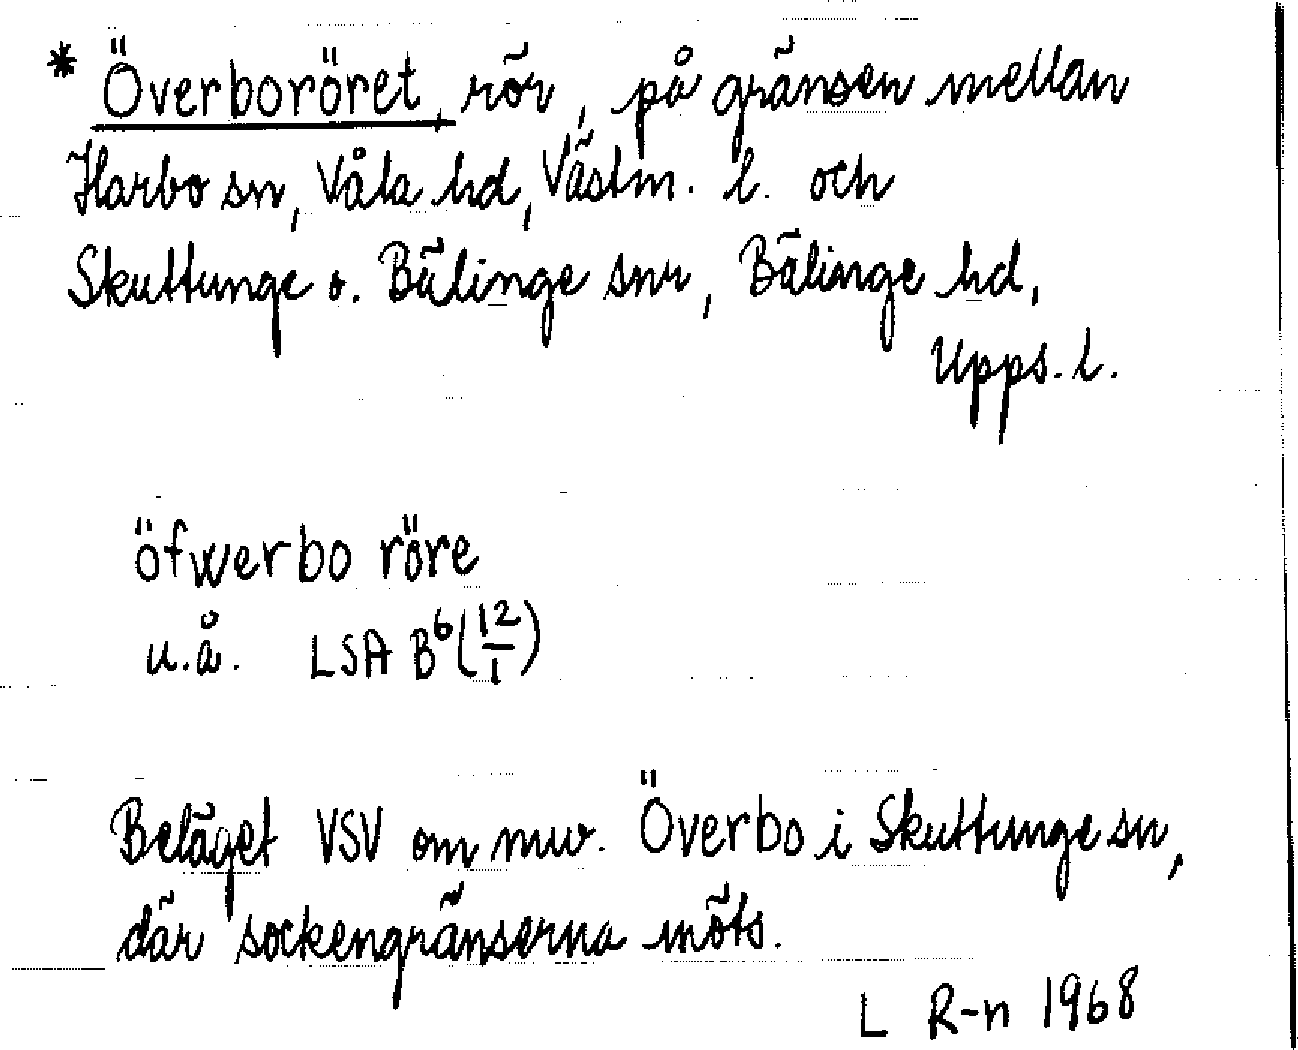 * Överboröret, rör, på gränsen mellan
Harbo sn, Våla hd, Västm. l. och
Skuttunge o. Bälinge snr, Bälinge hd,
Upps. l.
öfwerbo röre
u.å. LSA B⁶(12/1)
Beläget VSV om nuv. Överbo i Skuttunge sn,
där sockengränserna möts.
L R-n 1968